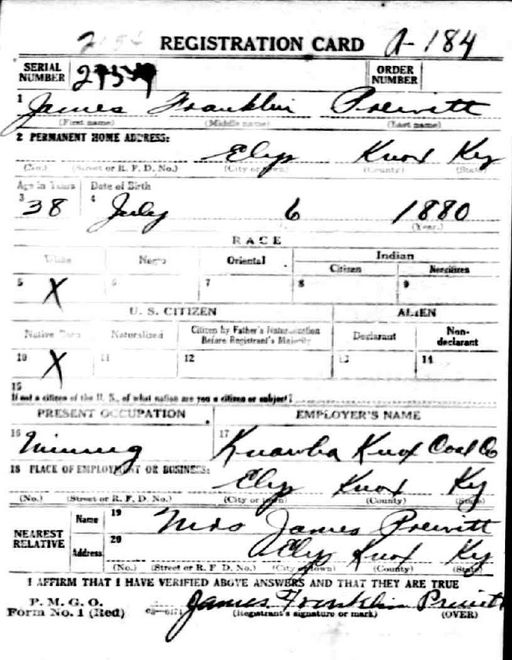 REGISTRATION CARD A-184
SERIAL NUMBER ORDER NUMBER
1 James Franklin Prewitt
(First name) (Middle name) (Last name)
2 PERMANENT HOME ADDRESS:
Elys Knox Ky
(No.) (Street or R. F. D. No.) (City or town) (County) (State)
Age in Years Date of Birth
3 38 4 July 6 1880
(Year.)
RACE
White Negro Oriental Indian
Citizen Noncitizen
5 X 6 7 8 9
U. S. CITIZEN ALIEN
Native Born Naturalized Citizen by Father's Naturalization Before Registrant's Majority Declarant Non-declarant
10 X 11 12 13 14
15
If not a citizen of the U. S., of what nation are you a citizen or subject?
PRESENT OCCUPATION EMPLOYER'S NAME
16 Mining 17 Knox Coal Co
18 PLACE OF EMPLOYMENT OR BUSINESS:
Elys Knox Ky
(No.) (Street or R. F. D. No.) (City or town) (County) (State)
NEAREST RELATIVE
Name 19 Mrs James Prewitt
Address 20 Elys Knox Ky
(No.) (Street or R. F. D. No.) (City or town) (County) (State)
I AFFIRM THAT I HAVE VERIFIED ABOVE ANSWERS AND THAT THEY ARE TRUE
P. M. G. O.
Form No. 1 (Red) James Franklin Prewitt
(Registrant's signature or mark) (OVER)